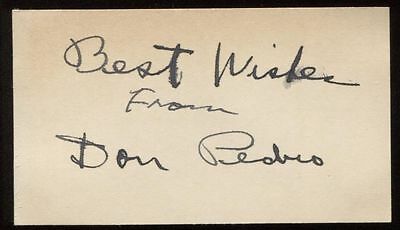 Best Wishes
From
Don Pedro